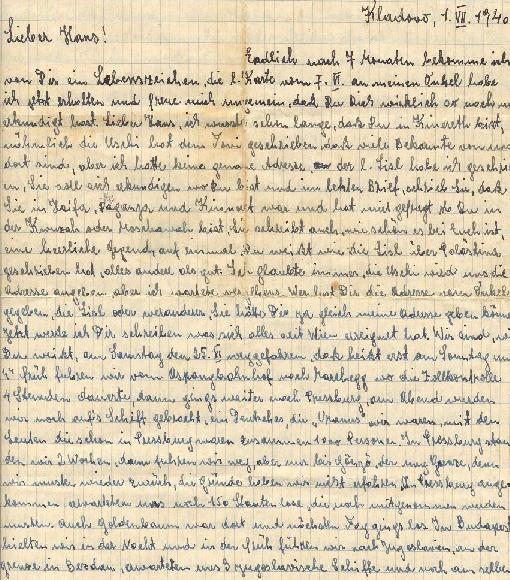 Kladovo, 1. VII. 1940
Lieber Hans!
Endlich nach 7 Monaten bekomme ich
von Dir ein Lebenszeichen, die l. Karte vom 7. VI. an meinen Onkel habe
ich jetzt erhalten und freue mich ungemein, daß Du Dich wirklich so nach mir
erkundigt hast. Lieber Hans, ich wusste schon lange, daß Du in Kinereth bist,
nähmlich die Uschi hat dem Toni geschrieben, daß viele Bekannte von uns
dort sind, aber ich hatte keine genaue Adresse der l. Lisl habe ich geschrie
en, Sie soll sich erkundigen wo Du bist und im letzten Brief, schrieb Sie, daß
Sie in Haifa, und Kinereth war und hat mich gefragt ob Du in
der Kwuzah oder Moschawah bist. Sie schreibt auch, wie schön es bei Euch ist,
eine herrliche Gegend, auf einmal. Du weißt wie die Lisl über Palästina
geschrieben hat, alles andere als gut. Ich glaubte immer, die Uschi wird uns die
Adresse angeben, aber ich wartete vergebens. Wer hat Dir die Adresse vom Onkel
gegeben, die Lisl oder wer anderer. Sie hätte Dir ja gleich meine Adresse geben könn
Jetzt werde ich Dir schreiben was sich alles seit Wien ereignet hat. Wir sind, wie
Du weißt, am Samstag den 25. XI weggefahren, daß heißt erst am Sonntag um
früh fuhren wir vom Aspangbahnhof nach Marchegg wo die Zollkontrolle
4 Stunden dauerte, dann gings weiter nach Pressburg, am Abend wurden
wir noch aufs Schiff gebracht, ein Deutsches, die „Uranus" wir waren, mit den
Leuten die schon in Pressburg waren zusammen 1000 Personen. In Pressburg stan
den wir 2 Wochen, dann fuhren wir weg, aber nur bis der ung. Grenze, denn
wir mussten wieder zurück, die Gründe haben wir nicht erfahren. In Pressburg ange
kommen erwarteten uns noch 150 Staatenlose, die noch mitgenommen werden
mussten. Auch Goldenbaum war dort und nächsten Tag gings los. In Budapest
hielten wir in der Nacht und in der früh fuhren wir nach Jugoslavien, an der
Grenze in Bezdan, erwarteten uns 3 jugoslavische Schiffe und noch am selben